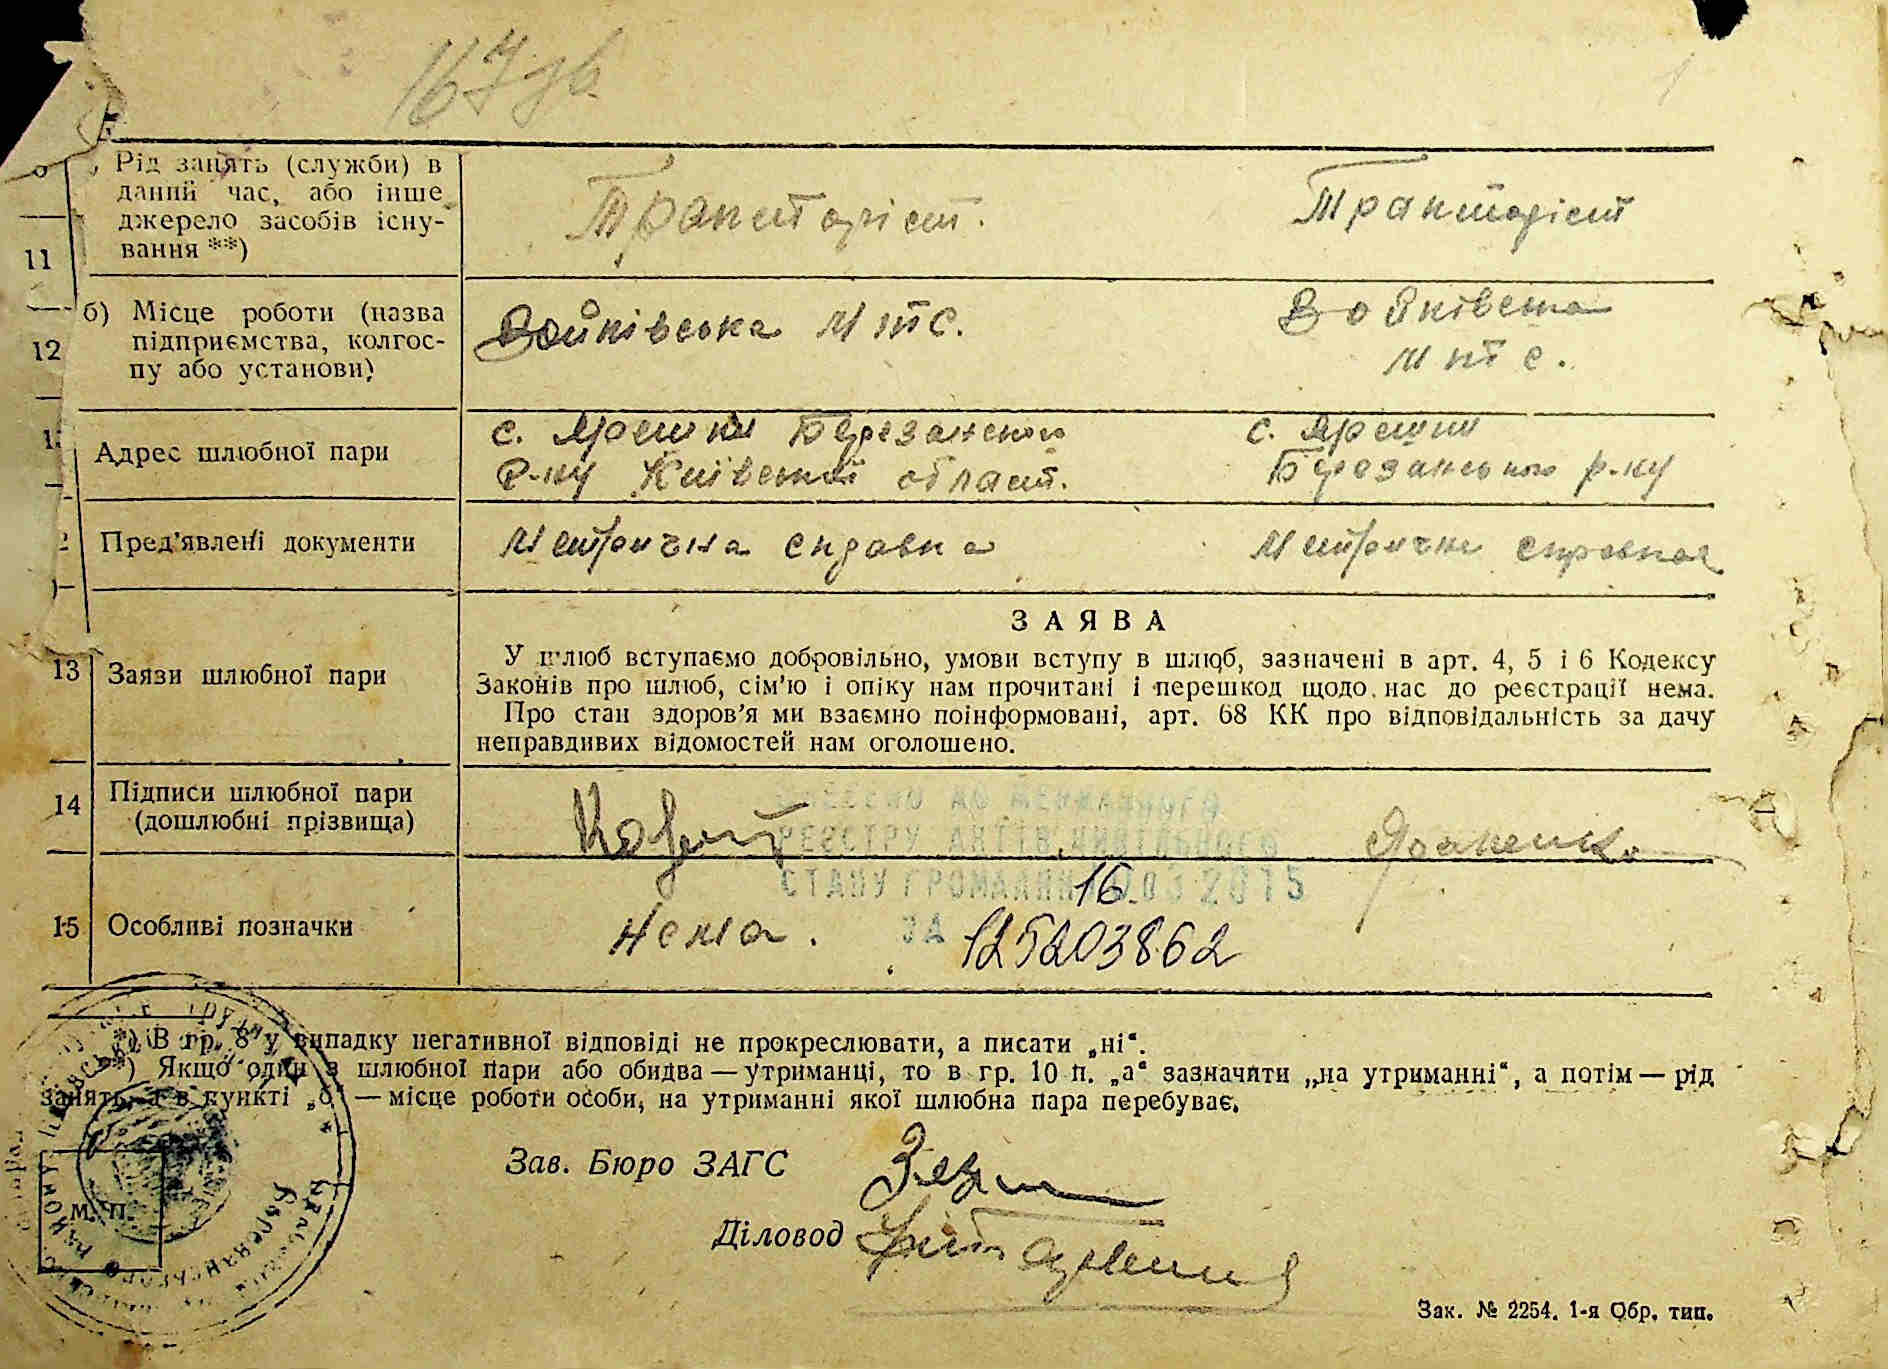 167 зв.
Рід занять (служби) в
даний час, або інше
джерело засобів існу-
вання **)
Транторіст.
Транторіст
11
б) Місце роботи (назва
підприємства, колгос-
пу або установи)
Войківська МТС.
Войківська
МТС.
12
Адрес шлюбної пари
с. Ярешки Березанського
Р-ну Київської област.
с. Ярешки
Березанського р-ну
Пред'явлені документи
Метрична справка
Метрична справка
13 Заяви шлюбної пари
ЗАЯВА
У шлюб вступаємо добровільно, умови вступу в шлюб, зазначені в арт. 4, 5 і 6 Кодексу
Законів про шлюб, сім'ю і опіку нам прочитані і перешкод щодо нас до реєстрації нема.
Про стан здоров'я ми взаємно поінформовані, арт. 68 КК про відповідальність за дачу
неправдивих відомостей нам оголошено.
14 Підписи шлюбної пари
(дошлюбні прізвища)
ВНЕСЕНО ДО ДЕРЖАВНОГО
РЕЄСТРУ АКТІВ ЦИВІЛЬНОГО
СТАНУ ГРОМАДЯН 16.03 2015
ЗА 125203862
15 Особливі позначки
Нема.
*) В гр. 8 у випадку негативної відповіді не прокреслювати, а писати „ні“.
**) Якщо один з шлюбної пари або обидва — утриманці, то в гр. 10 п. „а“ зазначити „на утриманні“, а потім — рід
занять, а в пункті „б“ — місце роботи особи, на утриманні якої шлюбна пара перебуває.
Зав. Бюро ЗАГС
Діловод
М. П.
Зак. № 2254. 1-я Обр. тип.